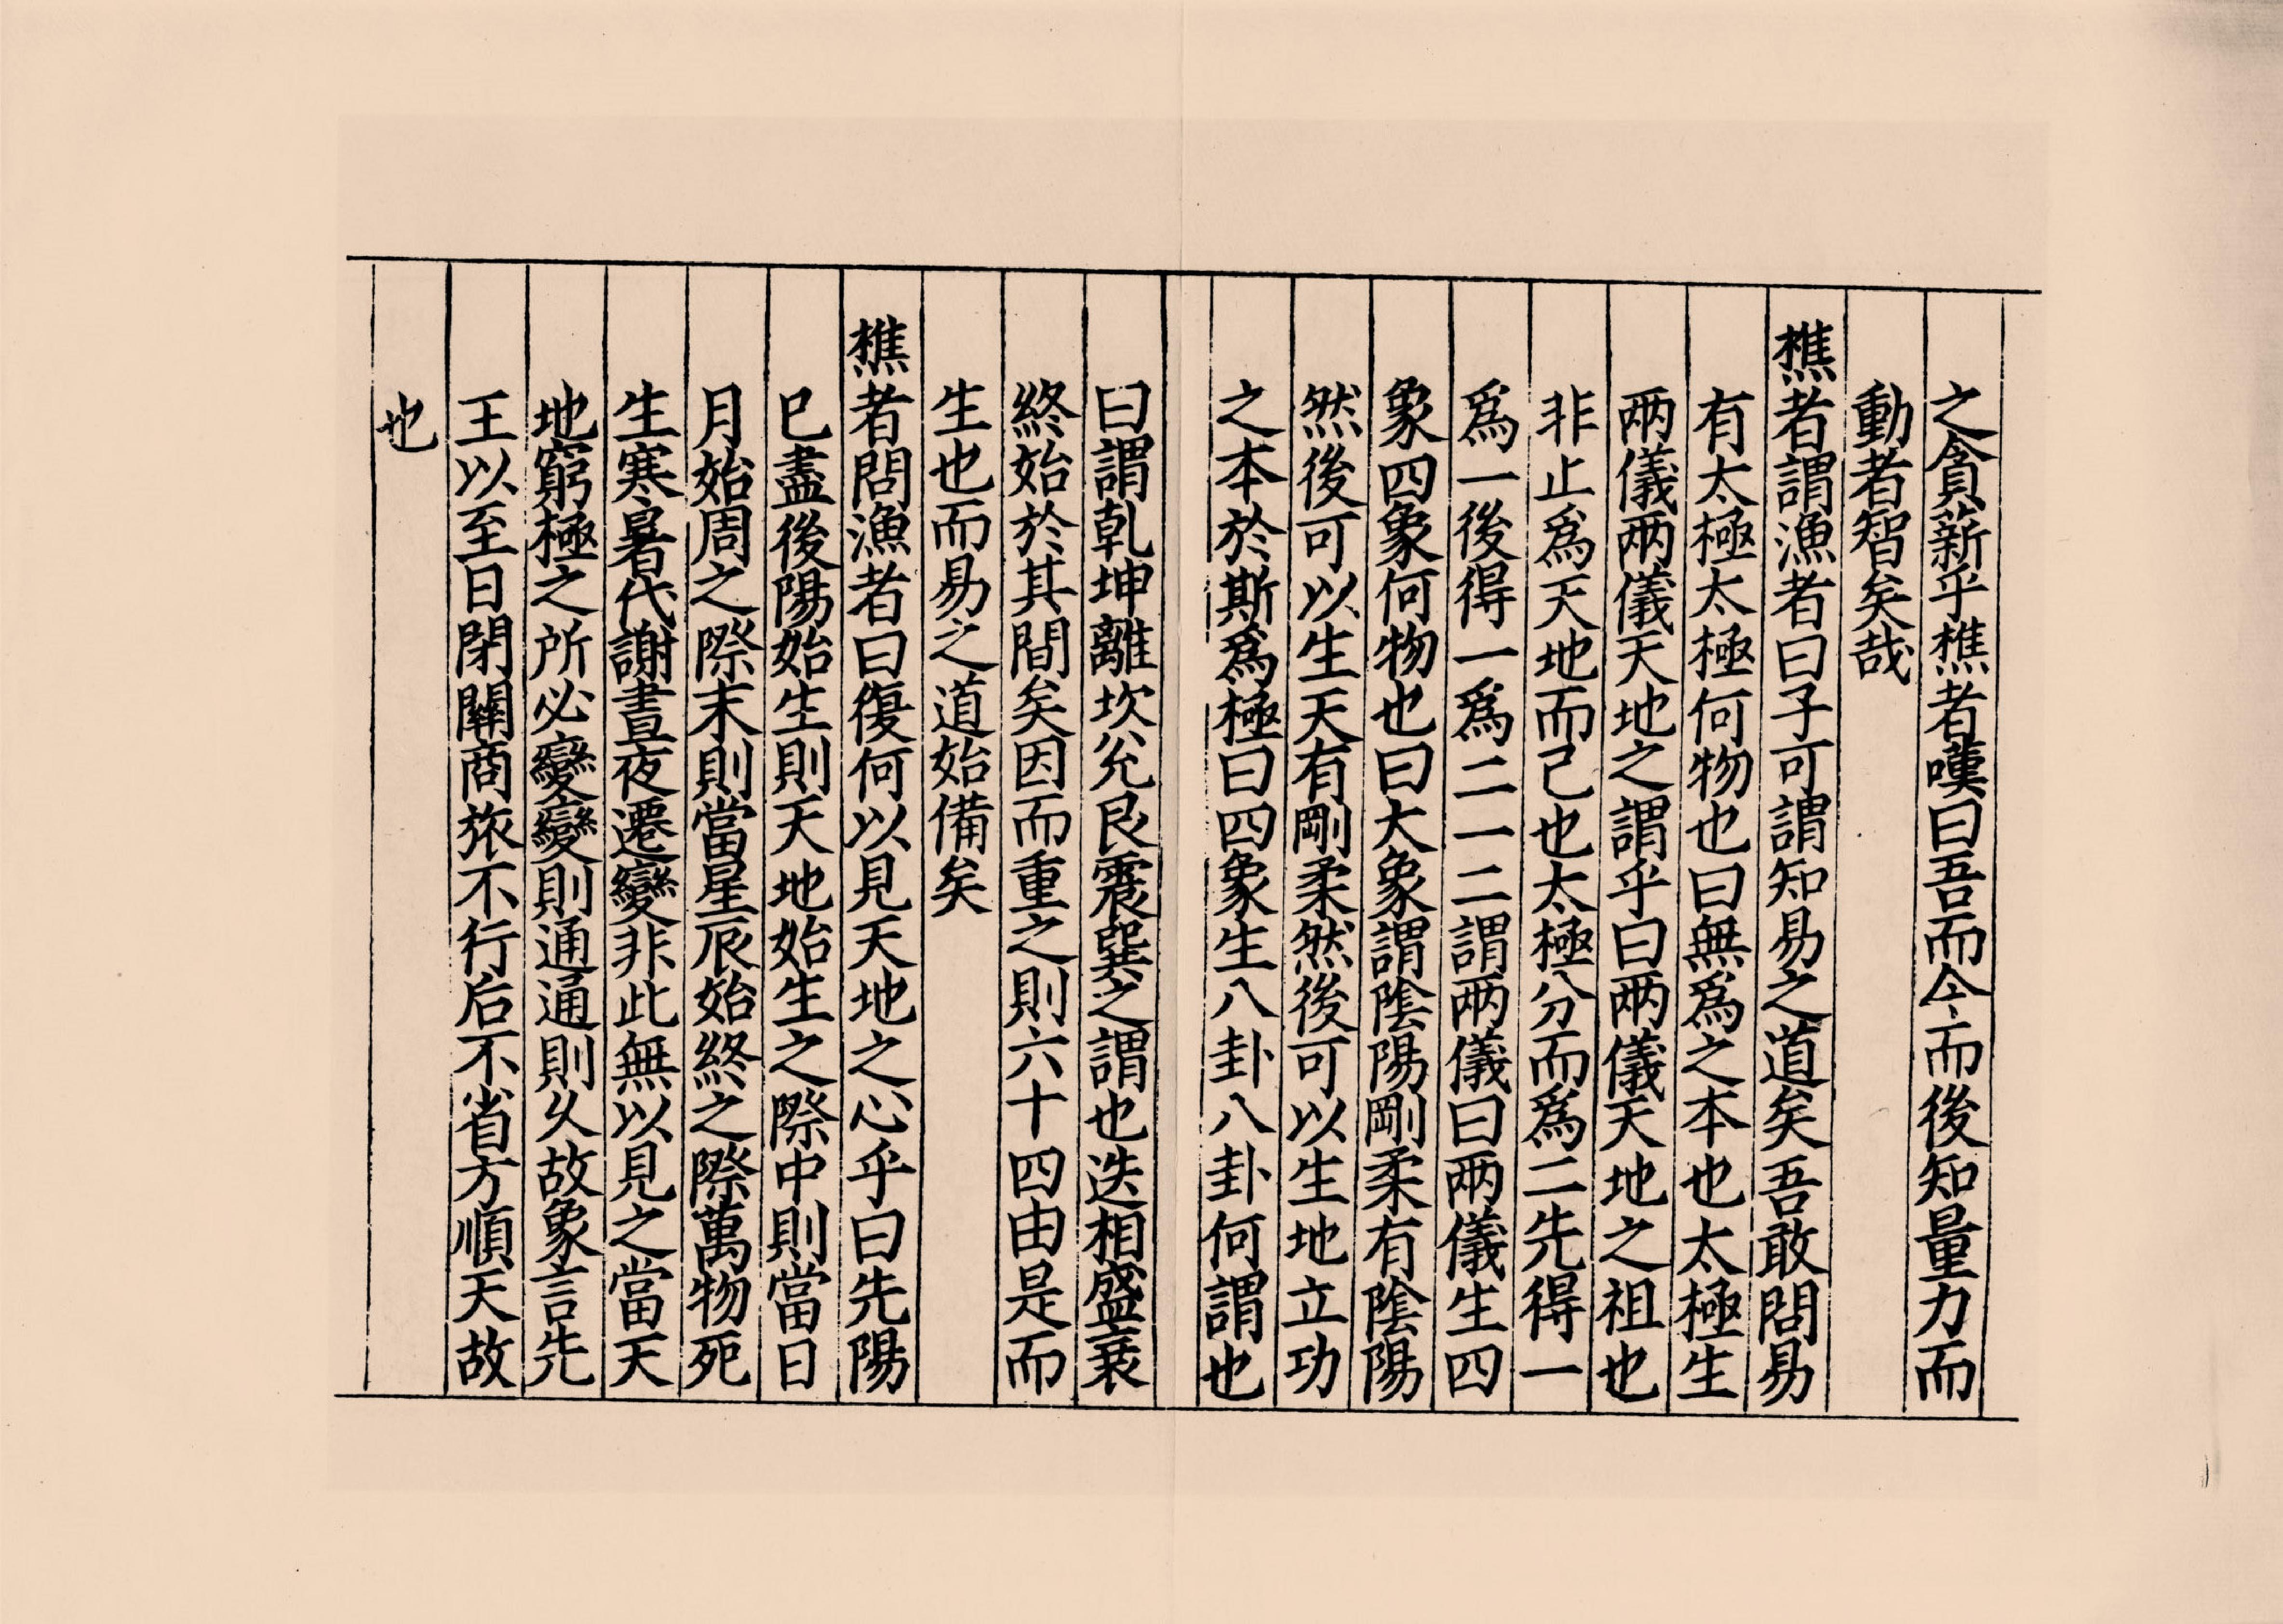 之貪薪乎樵者嘆曰吾而今而後知量力而
動者智矣哉
樵者謂漁者曰子可謂知易之道矣吾敢問易
有太極太極何物也曰無爲之本也太極生
兩儀兩儀天地之謂乎曰兩儀天地之祖也
非止爲天地而己也太極分而爲二先得一
爲一後得一爲二一二謂兩儀曰兩儀生四
象四象何物也曰大象謂陰陽剛柔有陰陽
然後可以生天有剛柔然後可以生地立功
之本於斯爲極曰四象生八卦八卦何謂也
曰謂乾坤離坎兊艮震巽之謂也迭相盛衰
終始於其間矣因而重之則六十四由是而
生也而易之道始備矣
樵者問漁者曰復何以見天地之心乎曰先陽
已盡後陽始生則天地始生之際中則當日
月始周之際末則當星辰始終之際萬物死
生寒暑代謝晝夜遷變非此無以見之當天
地窮極之所必變變則通通則久故象言先
王以至日閉關商旅不行后不省方順天故
也